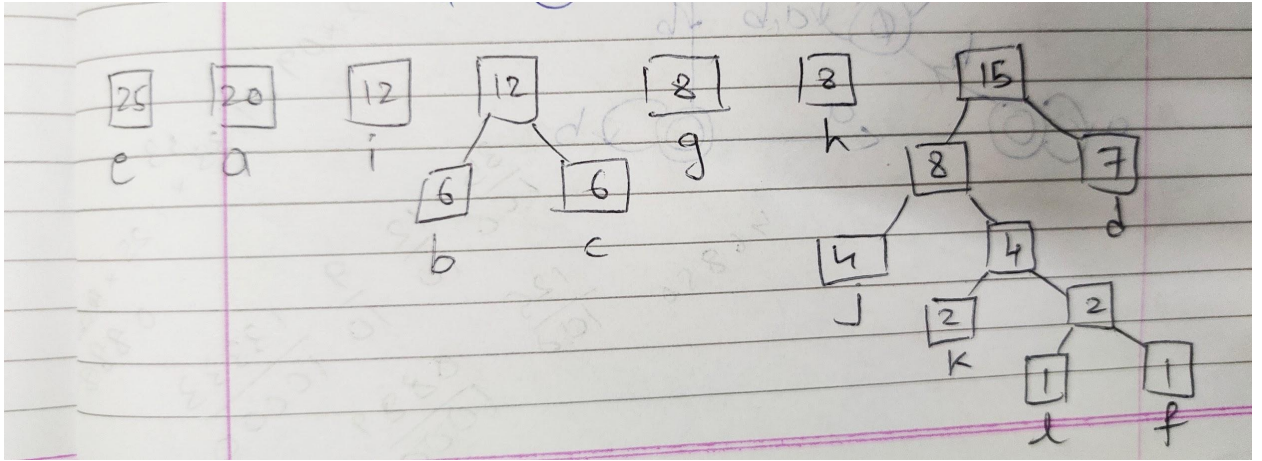 25 20 12 12 8 8 15
e a i g h
8 7
6 6
b c d
4 4
j
2 2
k
1 1
l f